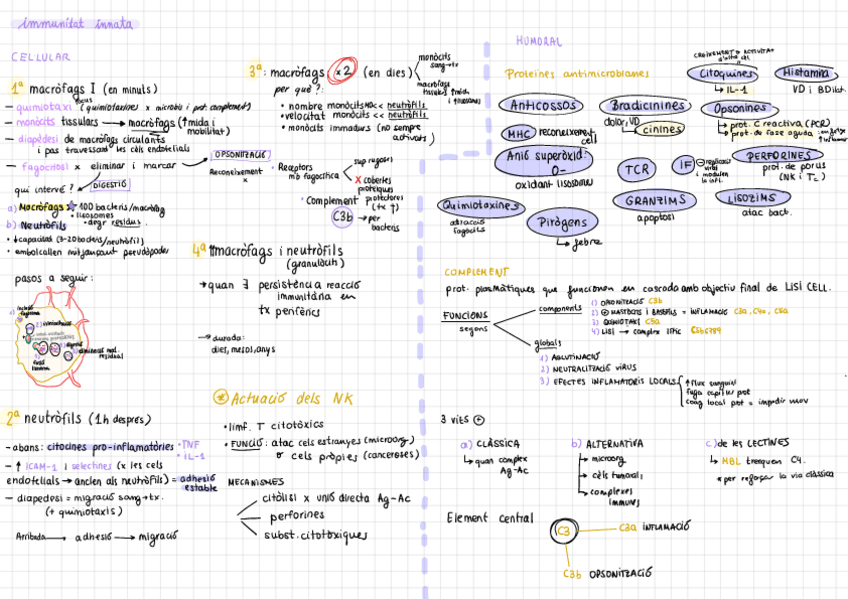 immunitat innata
CELLULAR
1ª macròfags I (en minuts)
- quimiotaxi (quimiotaxines x microbis i prot. complement)
- monòcits tissulars → macròfags (↑mida i mobilitat)
- diapèdesi de macròfags circulants
i pas travessant les cels endotelials
- fagocitosi x eliminar i marcar
OPSONITZACIÓ
Reconeixement x
DIGESTIÓ
qui intervé?
a) Macròfags
100 bacteris/macròfag
• lisosomes
• degr residus.
b) Neutròfils
• ↓capacitat (3-20 bacteris/neutròfil)
• embolcallen mitjançant pseudòpodes
• Receptors
mb fagocítica
sup rugosa
x cobertes
proteiques
protectores
(tx ↑)
• Complement
C3b → per bacteris
pasos a seguir:
2ª neutròfils (1h després)
- abans: citocines pro-inflamatòries
• TNF
• IL-1
- ↑ ICAM-1 i selectines (x les cels
endotelials → ancien als neutròfils) = adhesió estable
- diapedesi = migració sang→tx.
(+ quimiotaxis)
Arribada → adhesió → migració
3ª: macròfags x2 (en dies)
monòcits
sang→tx
macròfags
tissulars ↑mida
i ↑lisosomes
per què?:
• nombre monòcits <<< neutròfils
• velocitat monòcits << neutròfils
• monòcits immadurs (no sempre
activats)
4ª ↑↑macròfags i neutròfils
(granulòcits)
→ quan ∃ persistència reacció
immunitària en
tx perifèrics
→ durada:
dies, mesos, anys
Actuació dels NK
• limf. T citotòxics
• FUNCIÓ: atac cels estranyes (microorg)
o cels pròpies (canceroses)
MECANISMES
citòlisi x unió directa Ag-Ac
perforines
subst. citotòxiques
HUMORAL
Proteïnes antimicrobianes
CREIXEMENT O ACTIVITAT
Citoquines
→ IL-1
Histamina
VD i BDilt.
Anticossos
Bradicinines
dolor, VD
cinines
Opsonines
→ prot. C reactiva (PCR)
→ prot. de fase aguda
MHC
reconeixement cell
Anió superòxid:
O-
oxidant lisosomes
TCR
IF
replicació
viral
i modulen
la infl.
PERFORINES
prot. de porus
(NK i Tc)
Quimiotaxines
atracció
fagòcits
Pirògens
→ febre
GRANZIMS
apoptosi
LISOZIMS
atac bact.
COMPLEMENT
prot. plasmàtiques que funcionen en cascada amb objectiu final de LISI CELL.
FUNCIONS
segons
components
1) OPSONITZACIÓ C3b
2) ⊕ MASTÒCITS i BASÒFILS = INFLAMACIÓ C3a, C4a, C5a
3) QUIMIOTAXI C5a
4) LISI → complex lític C5b6789
globals
1) AGLUTINACIÓ
2) NEUTRALITZACIÓ VIRUS
3) EFECTES INFLAMATORIS LOCALS
↑ flux sanguini
fuga capilar prot
coag local prot = impedir mov
3 vies ⊕
a) CLÀSSICA
→ quan complex
Ag-Ac
b) ALTERNATIVA
→ microorg
→ cèls tumorals
→ complexes
immuns
c) de les LECTINES
→ MBL trenquen C4.
*per reforçar la via clàssica
Element central
C3
C3a INFLAMACIÓ
C3b OPSONITZACIÓ